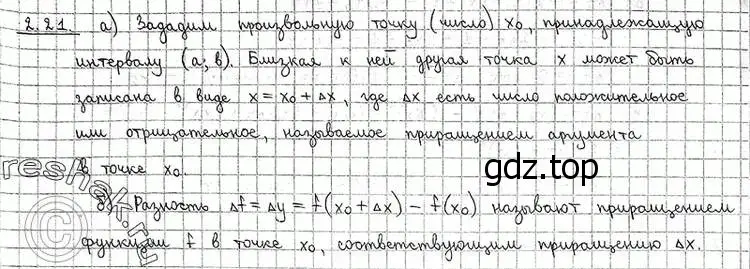 2.21. а) Зададим произвольную точку (число) x₀, принадлежащую
интервалу (a; b). Близкая к ней другая точка x может быть
записана в виде x = x₀ + Δx, где Δx есть число положительное
или отрицательное, называемое приращением аргумента
в точке x₀.
gdz.top
reshak.ru
©
б) Разность Δf = Δy = f(x₀ + Δx) − f(x₀) называют приращением
функции f в точке x₀, соответствующим приращению Δx.